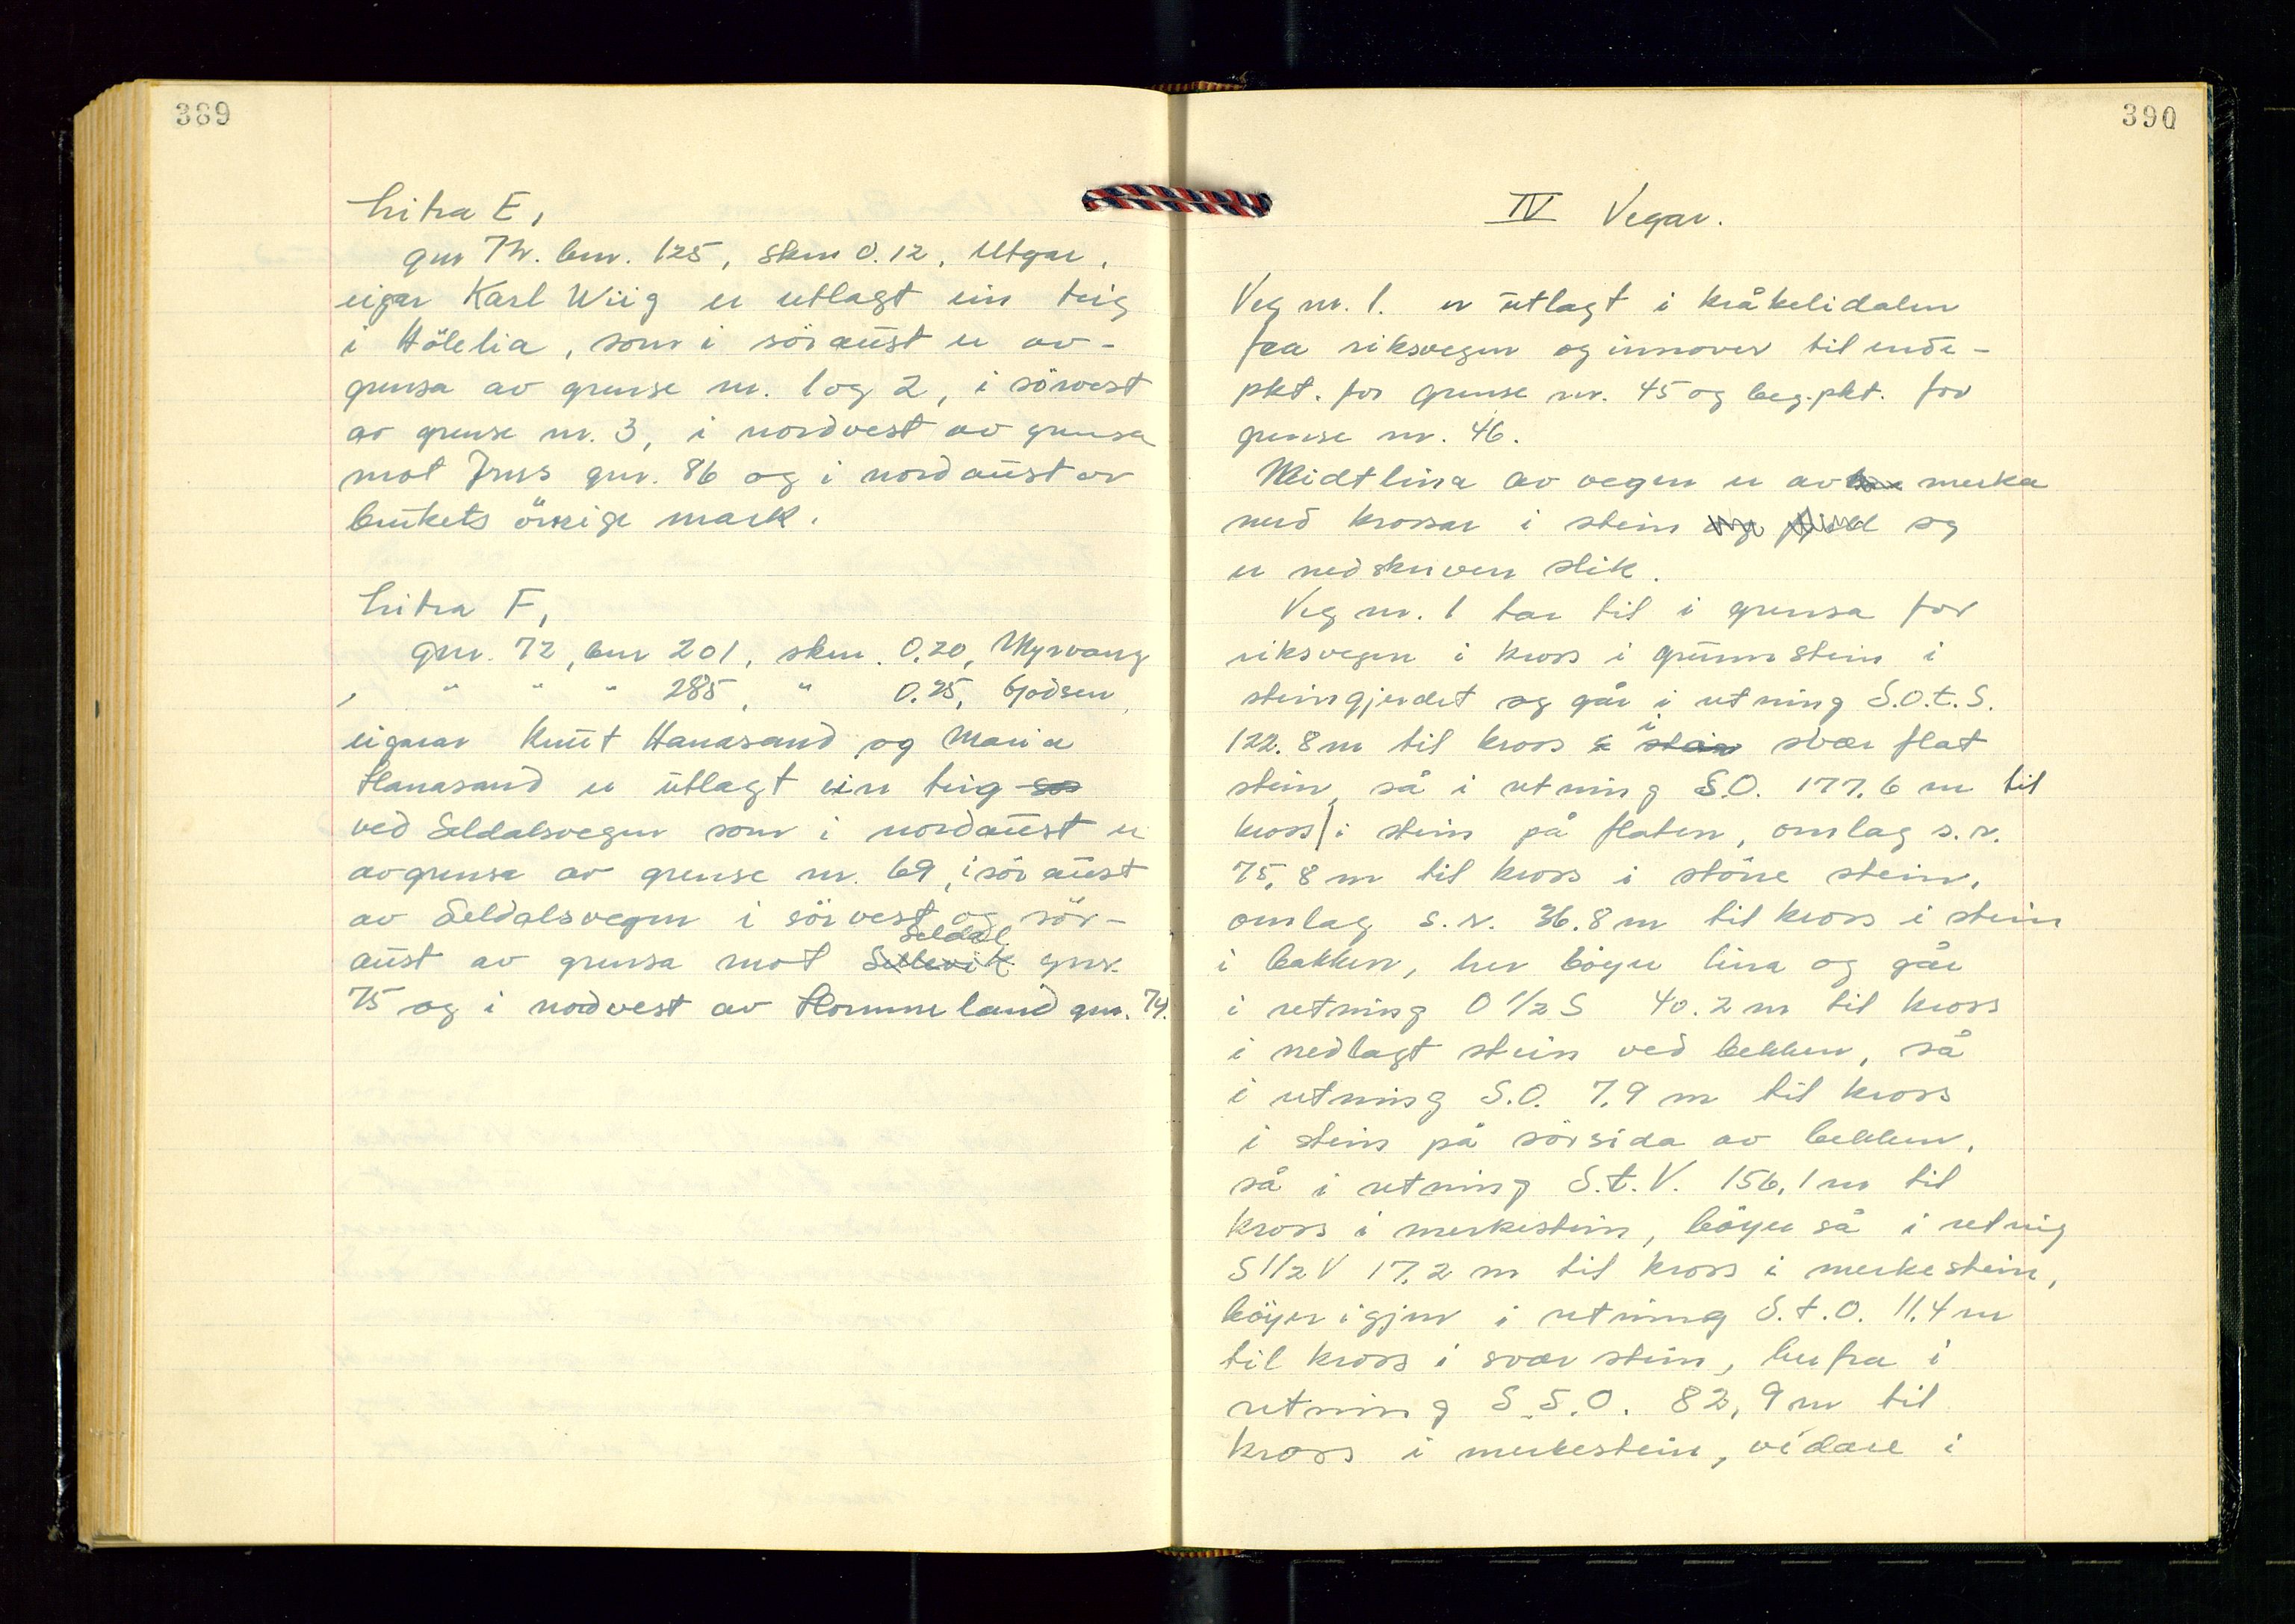 389
Litra E,
gnr 72. bnr. 125, skm 0.12, Utgar,
eigar Karl Wiig er utlagt ein teig
i Hölelia, som i söraust er av-
grensa av grense nr. 1 og 2, i sörvest
av grense nr. 3, i nordvest av grensa
mot Ims gnr. 86 og i nordaust av
brukets övrige mark.
Litra F,
gnr. 72, bnr 201, skm. 0.20, Myrvang
, " " " 285, " 0.25, Gjödsen,
eigarar Knut Hanasand og Maria
Hanasand er utlagt ein teig so
ved Seldalsvegen som i nordaust er
avgrensa av grense nr. 69, i söraust
av Seldalsvegen i sörvest og sör-
Seldal
aust av grensa mot Sellevik gnr.
75 og i nordvest av Hommeland gnr. 74.
390
IV Vegar.
Veg nr. 1. er utlagt i Kråkelidalen
fra riksvegen og innover til ende-
pkt. for grense nr. 45 og beg.pkt. for
grense nr. 46.
Midtlina av vegen er av merka
med krossar i stein og fjell og
er nedskriven slik.
Veg nr. 1 tar til i grensa for
riksvegen i kross i grunnstein i
steingjerdet og går i retning S.O.t.S.
122.8 m til kross i stein i svær flat
stein, så i retning S.O. 177.6 m til
kross i stein på flaten, omlag s.r.
75,8 m til kross i större stein,
omlag s.r. 36.8 m til kross i stein
i bakken, her böyer lina og går
i retning O 1/2 S 40.2 m til kross
i nedlagt stein ved bekken, så
i retning S.O. 7,9 m til kross
i stein på sörsida av bekken,
så i retning S.t.V. 156,1 m til
kross i merkestein, böyer så i retnig
S 1/2 V 17,2 m til kross i merkestein,
böyer igjen i retning S.t.O. 11.4 m
til kross i svær stein, herfra i
retning S.S.O. 82,9 m til
kross i merkestein, vidare i